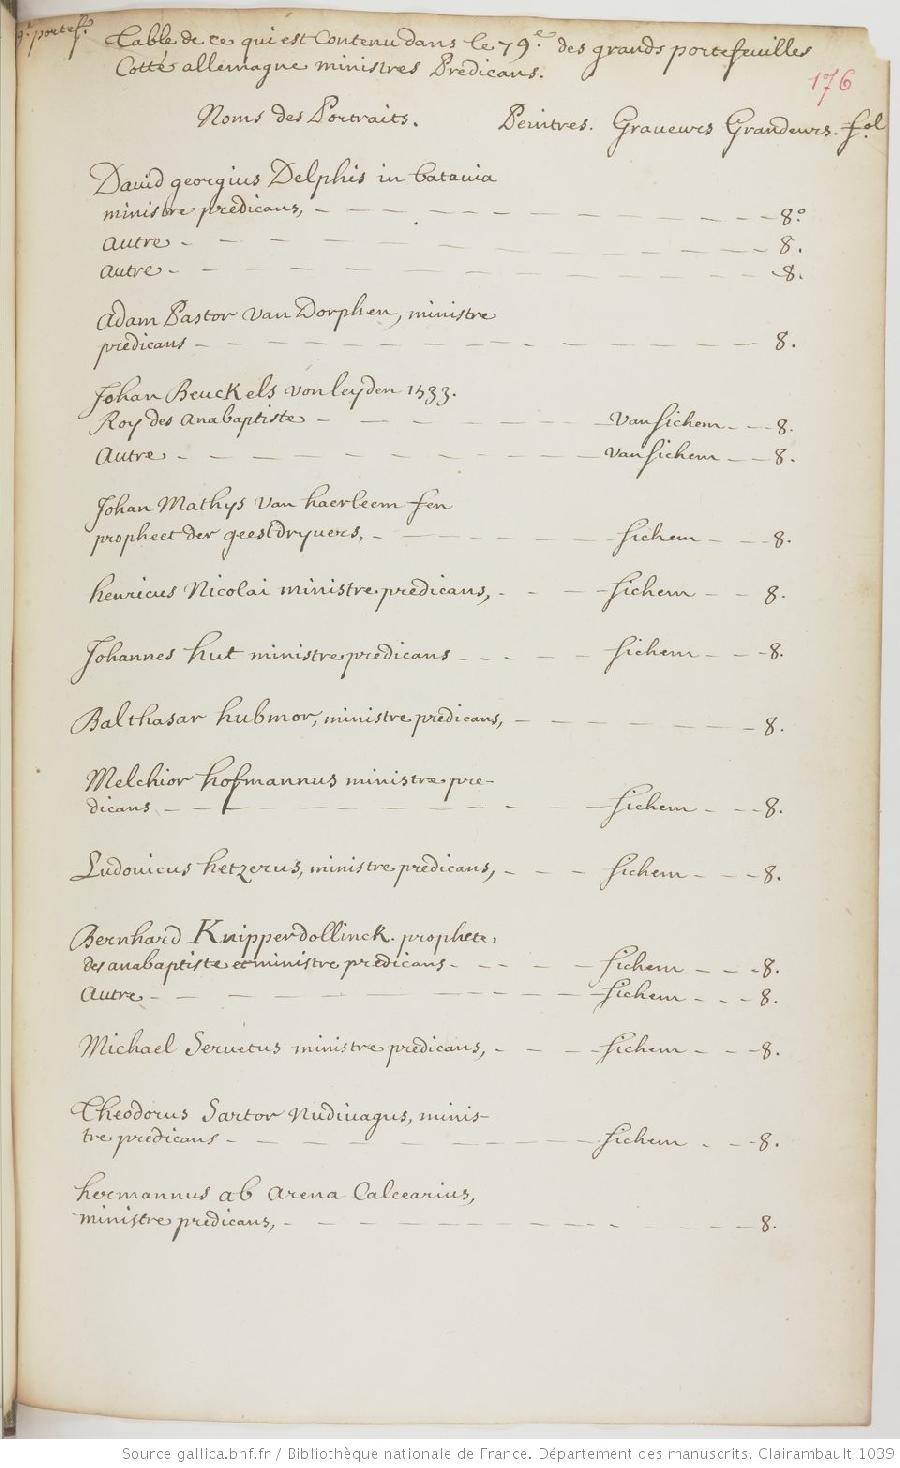 9.e portef.
Table de ce qui est Contenu dans le 79.e des grands portefeuilles
Cotté allemagne ministres Predicans.
176
Noms des Portraits. Peintres. Graveurs Grandeurs. fol
David georgius Delphis in batavia
ministre predicans, 8.o
autre 8.
autre 8.
Adam Pastor van Dorphen, ministre
predicans 8.
Johan Beuckels von leyden 1533.
Roy des anabaptiste van sichem 8.
Autre van sichem 8.
Johan Mathys van haerleem
propheet der geestdryvers, sichem 8.
henricus Nicolai ministre predicans, sichem 8.
Johannes hut ministre predicans sichem 8.
Balthasar hubmor, ministre predicans, 8.
Melchior hofmannus ministre pre-
dicans sichem 8.
Ludovicus hetzerus, ministre predicans, sichem 8.
Bernhard Knipperdollinck. prophete,
des anabaptiste et ministre predicans sichem 8.
Autre sichem 8.
Michael Servetus ministre predicans, sichem 8.
Theodorus Sartor Nudivagus, minis-
tre predicans sichem 8.
hermannus ab arena Calcearius,
ministre predicans, 8.
Source gallica.bnf.fr / Bibliothèque nationale de France. Département des manuscrits. Clairambault 1039